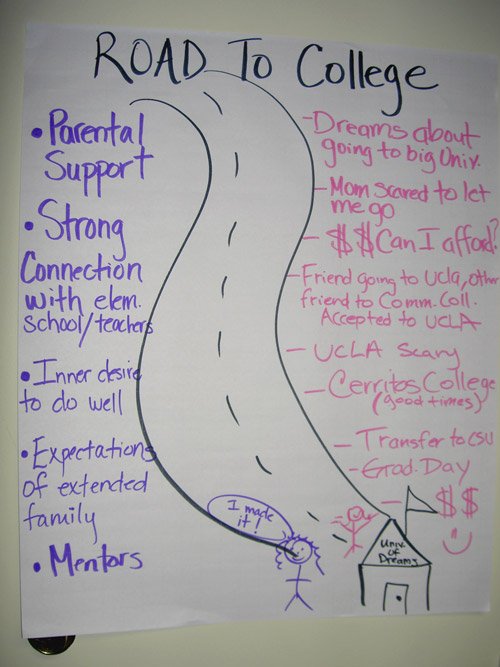 ROAD TO College
• Parental
Support
• Strong
Connection
with elem.
school/teachers
• Inner desire
to do well
• Expectations
of extended
family
• Mentors
- Dreams about
going to big Univ.
- Mom scared to let
me go
- $$ Can I afford?
- Friend going to UCLA, other
friend to Comm. Coll.
Accepted to UCLA
- UCLA Scary
- Cerritos College
(good times)
- Transfer to CSU
- Grad. Day
- $$
I made
it!
Univ.
of
Dreams